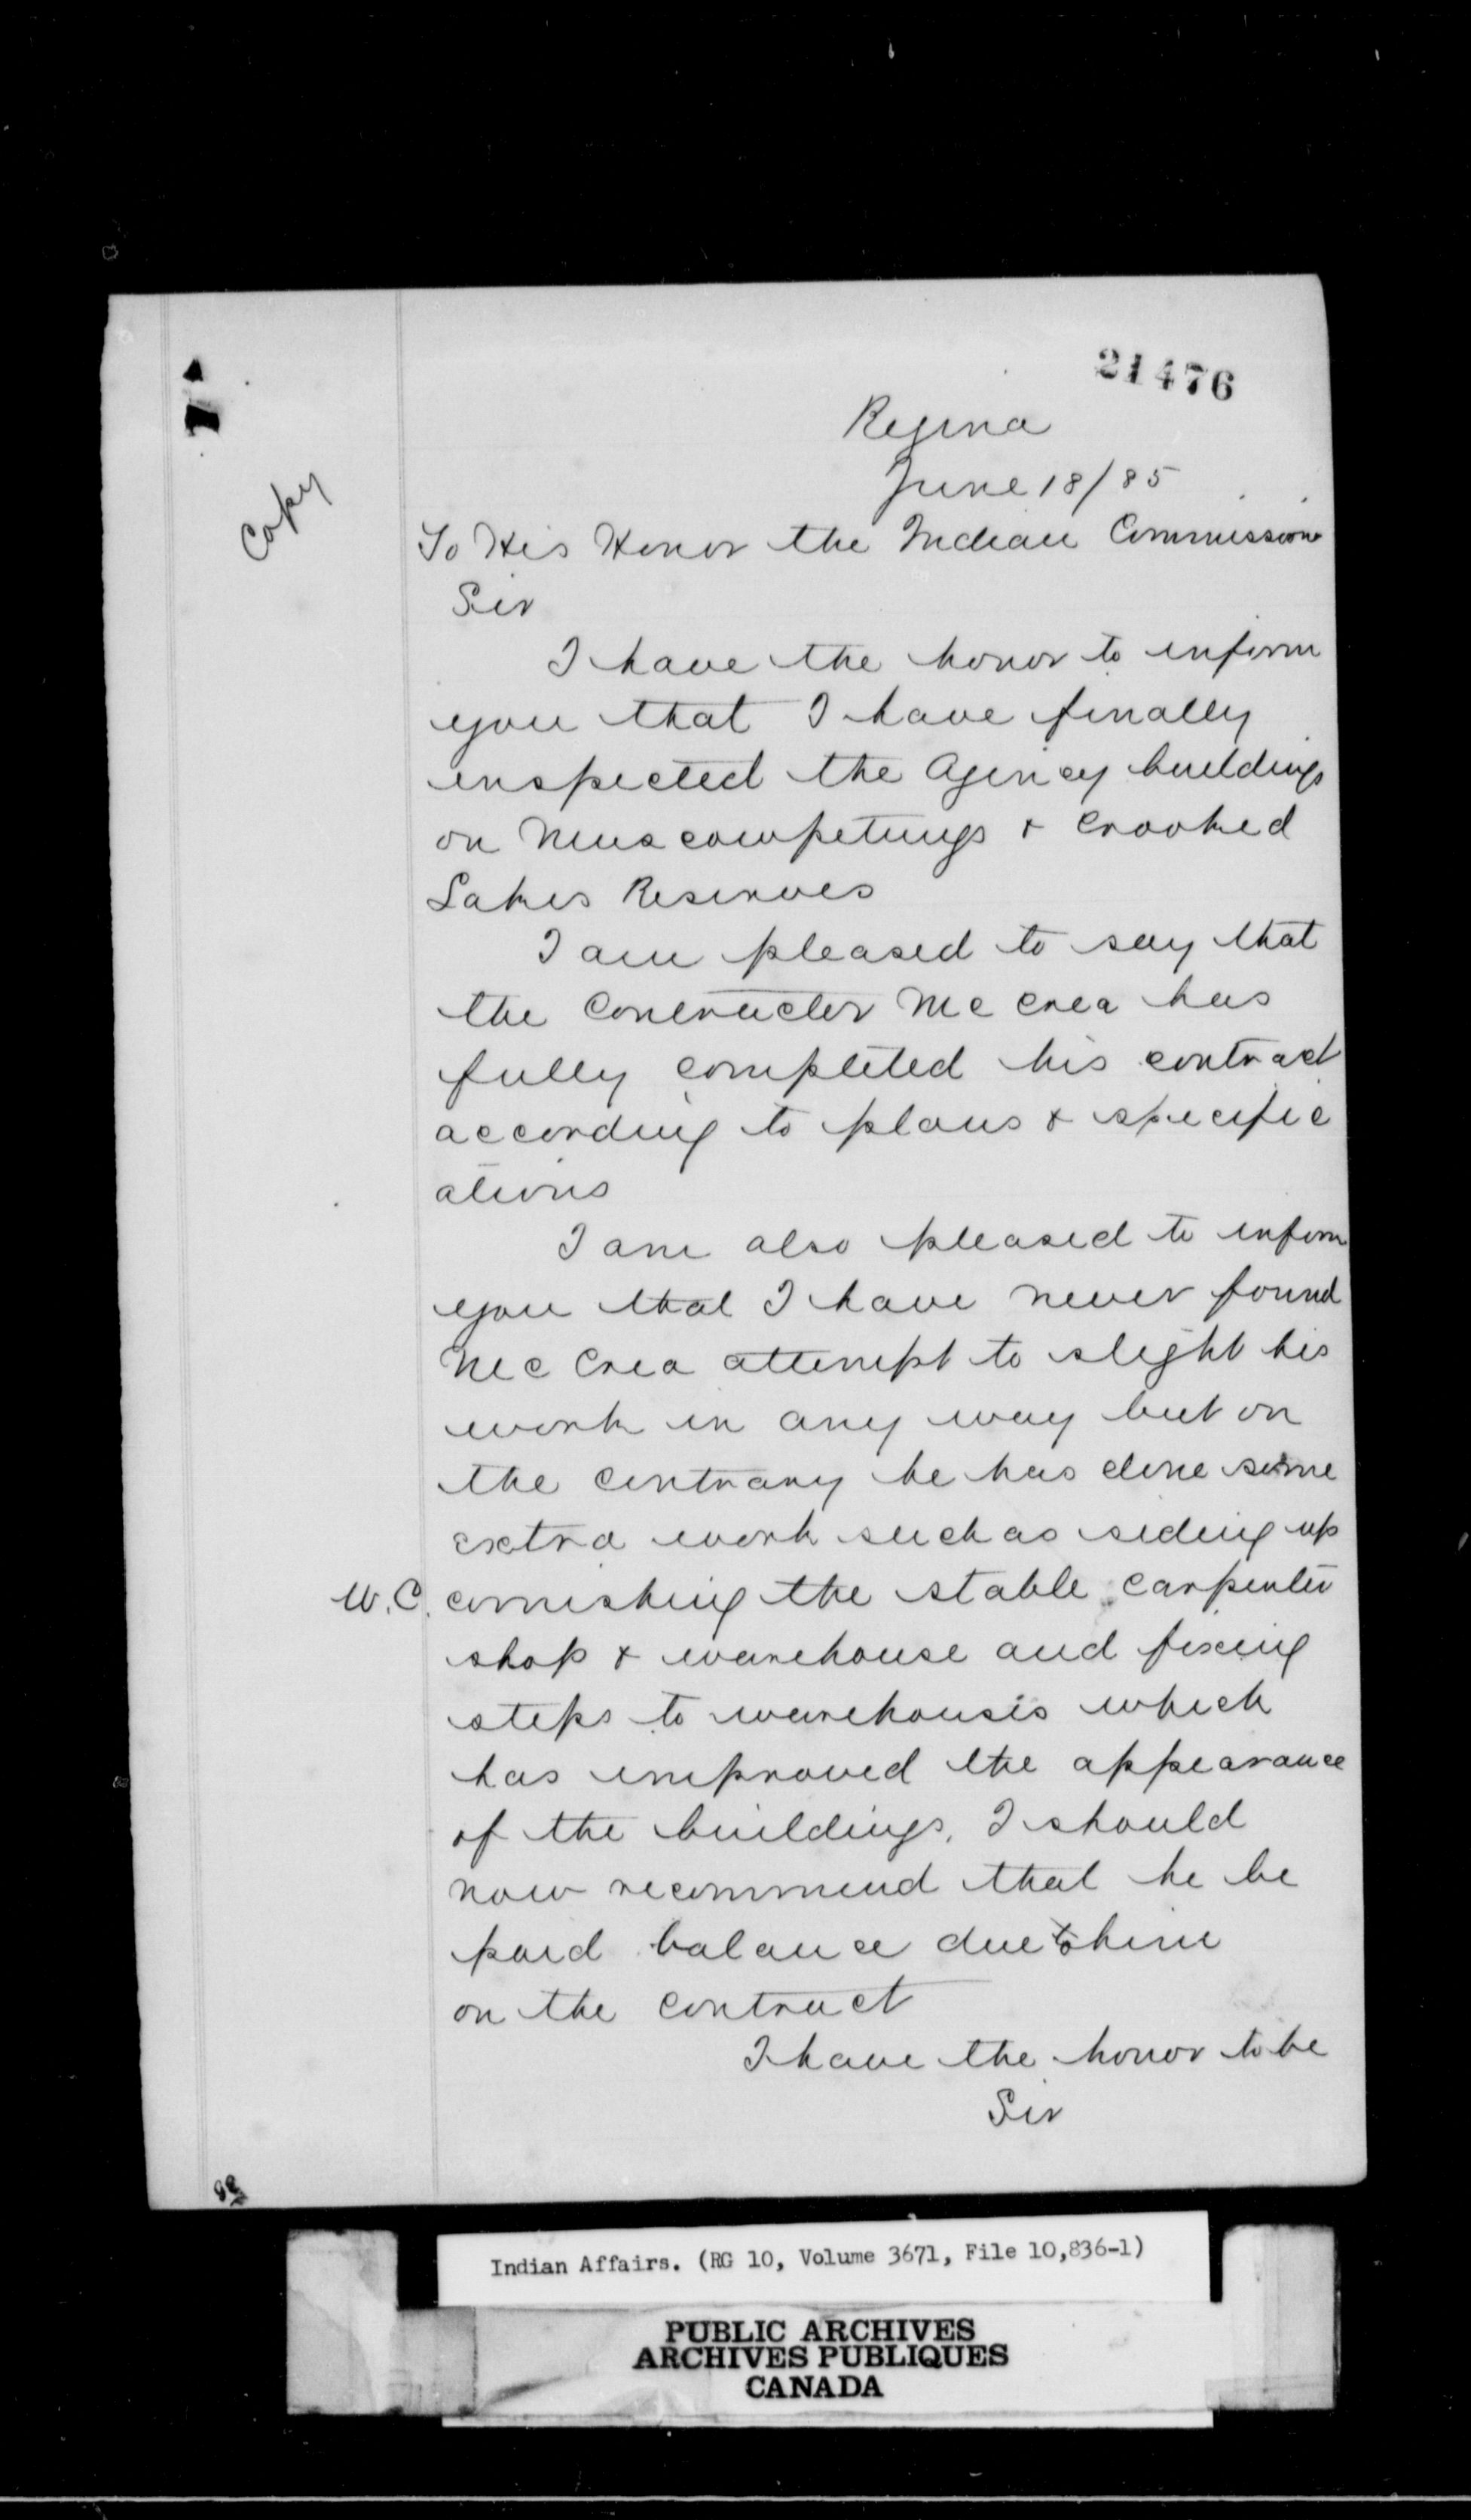 21476
Regina
June 18/85
Copy
To His Honor the Indian Commissioner
Sir
I have the honor to inform
you that I have finally
inspected the Agency buildings
on Muscowpetungs & Crooked
Lakes Reserves
I am pleased to say that
the Contractor McCrea has
fully completed his contract
according to plans & specific
ations
I am also pleased to inform
you that I have never found
McCrea attempt to slight his
work in any way but on
the contrary he has done some
extra work such as siding up
W.C. cornishing the stable carpenter
shop & warehouse and fixing
steps to warehouses which
has improved the appearance
of the buildings. I should
now recommend that he be
paid balance due to him
on the contract
I have the honor to be
Sir
Indian Affairs. (RG 10, Volume 3671, File 10,836-1)
PUBLIC ARCHIVES
ARCHIVES PUBLIQUES
CANADA